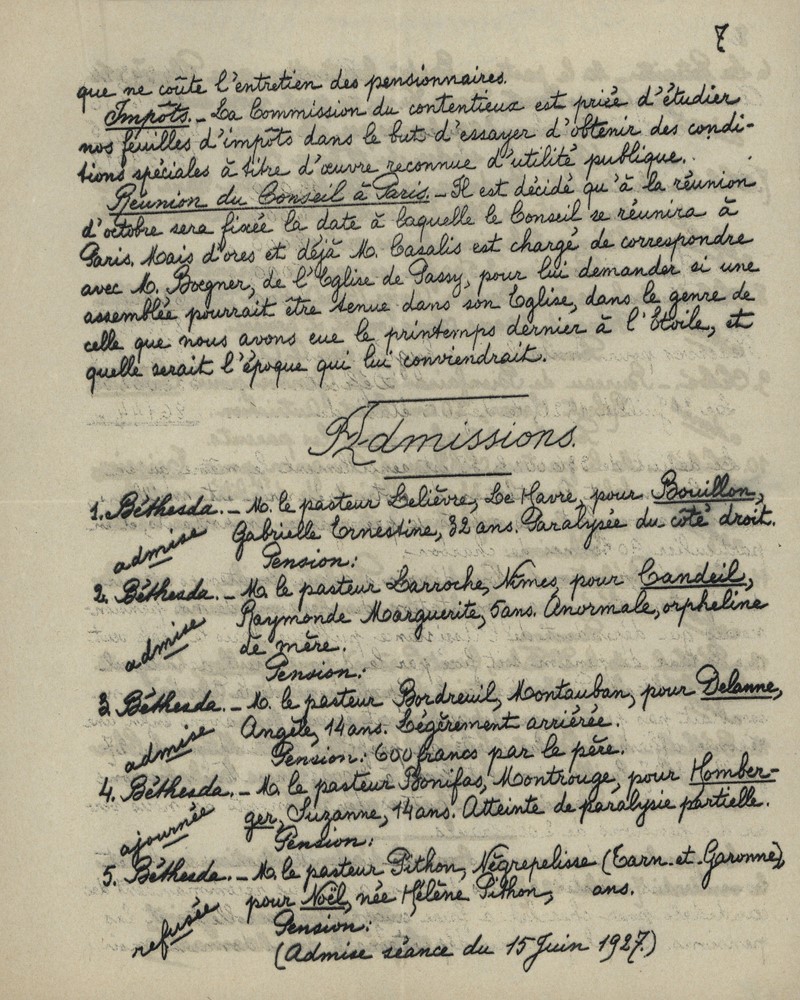 7
que ne coûte l'entretien des pensionnaires.
Impôts. _ La Commission du contentieux est priée d'étudier
nos feuilles d'impôts dans le but d'essayer d'obtenir des condi-
tions spéciales à titre d'œuvre reconnue d'utilité publique.
Réunion du Conseil à Paris. _ Il est décidé qu'à la réunion
d'octobre sera fixée la date à laquelle le Conseil se réunira à
Paris. Mais d'ores et déjà M. Casalis est chargé de correspondre
avec M. Bœgner, de l'Eglise de Passy, pour lui demander si une
assemblée pourrait être tenue dans son Eglise, dans le genre de
celle que nous avons eue le printemps dernier à l'Etoile, et
quelle serait l'époque qui lui conviendrait.
Admissions.
1. Béthesda. _ M. le pasteur Lelièvre, Le Havre, pour Bouillon,
admise Gabrielle Ernestine, 32 ans. Paralysée du côté droit.
Pension:
2. Béthesda. _ M. le pasteur Larroche, Nîmes, pour Candeil,
admise Raymonde Marguerite, 5 ans. Anormale, orpheline
de mère.
Pension:
3. Béthesda. _ M. le pasteur Bordreuil, Montauban, pour Delanne,
admise Angèle, 14 ans. Légèrement arriérée.
Pension: 600 francs par le père.
4. Béthesda. _ M. le pasteur Bonifas, Montrouge, pour Homber-
ajournée ger, Suzanne, 14 ans. Atteinte de paralysie partielle.
Pension:
5. Béthesda. _ M. le pasteur Pithon, Nègrepelisse (Tarn-et-Garonne),
refusée pour Noël, née Hélène Pithon, ans.
Pension:
(Admise séance du 15 Juin 1927.)